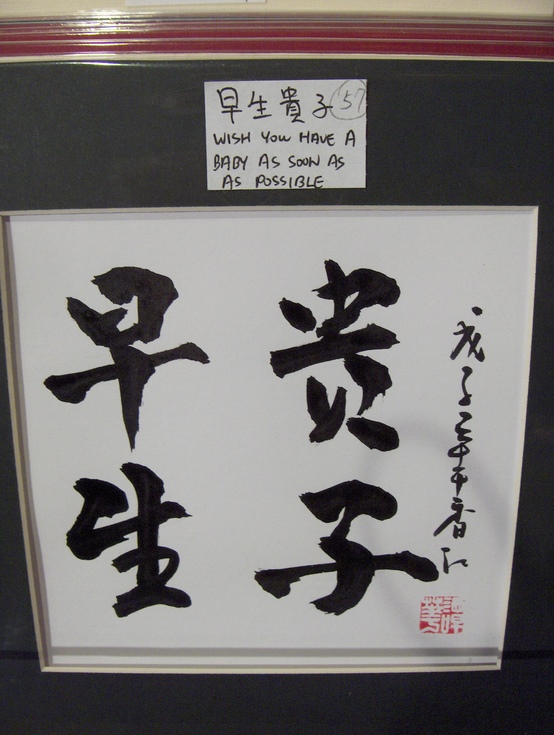 早生貴子 57
WISH YOU HAVE A
BABY AS SOON AS
AS POSSIBLE
早生
貴子
戊子 香江